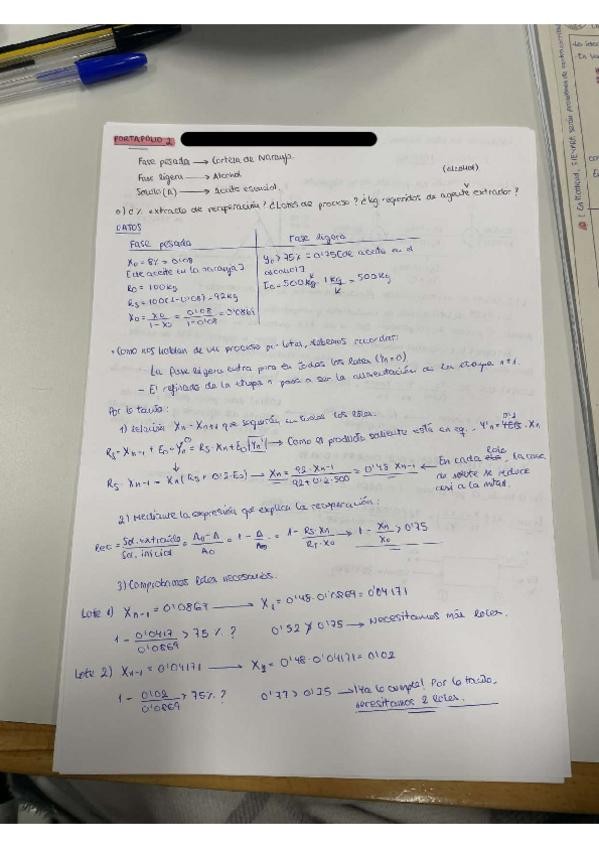 PORTAFOLIO 2
Fase pesada → Corteza de Naranja.
Fase ligera → Alcohol
Soluto (A) → Aceite esencial.
(alcohol)
a) ¿% extracto de recuperación? ¿Lotes de proceso? ¿kg requeridos de agente extractor?
DATOS
Fase pesada
X0 = 8% = 0'08
[de aceite en la naranja]
R0 = 100kg
Rs = 100(1-0'08) = 92kg
X0 = x0/1-x0 = 0'08/1-0'08 = 0'0869
Fase ligera
Y0 > 75% = 0'75 [de aceite en el
alcohol]
E0 = 500kg · 1kg/k = 500kg
• Como nos hablan de un proceso por lotes, debemos recordar:
- La fase ligera entra pura en todos los lotes (Yn=0)
- El refinado de la etapa n pasa a ser la alimentación de la etapa n+1.
Por lo tanto:
1) Relación Xn - Xn+1 que seguirán en todos los lotes.
Rs·Xn-1 + E0·Yn = Rs·Xn + E0 Yn' → Como el producto saliente está en eq. Y'n = 0'2·Xn
Rs·Xn-1 = Xn(Rs + 0'2·E0) → Xn = 92·Xn-1/92+0'2·500 = 0'48 Xn-1 ← En cada lote, la conc
no soluto se reduce
casi a la mitad.
2) Mediante la expresión que explica la recuperación:
Rec = Sol. extraído/Sol. inicial = A0-A/A0 = 1 - A/A0 = 1 - Rs·Xn/Rs·X0 → 1 - Xn/X0 > 0'75
3) Comprobamos lotes necesarios.
Lote 1) Xn-1 = 0'0869 → X1 = 0'48·0'0869 = 0'04171
1 - 0'0417/0'0869 > 75%? 0'52 ≯ 0'75 → Necesitamos más lotes.
Lote 2) Xn-1 = 0'04171 → X2 = 0'48·0'04171 = 0'02
1 - 0'02/0'0869 > 75%? 0'77 > 0'75 → ¡Ya lo cumple! Por lo tanto,
necesitamos 2 lotes.